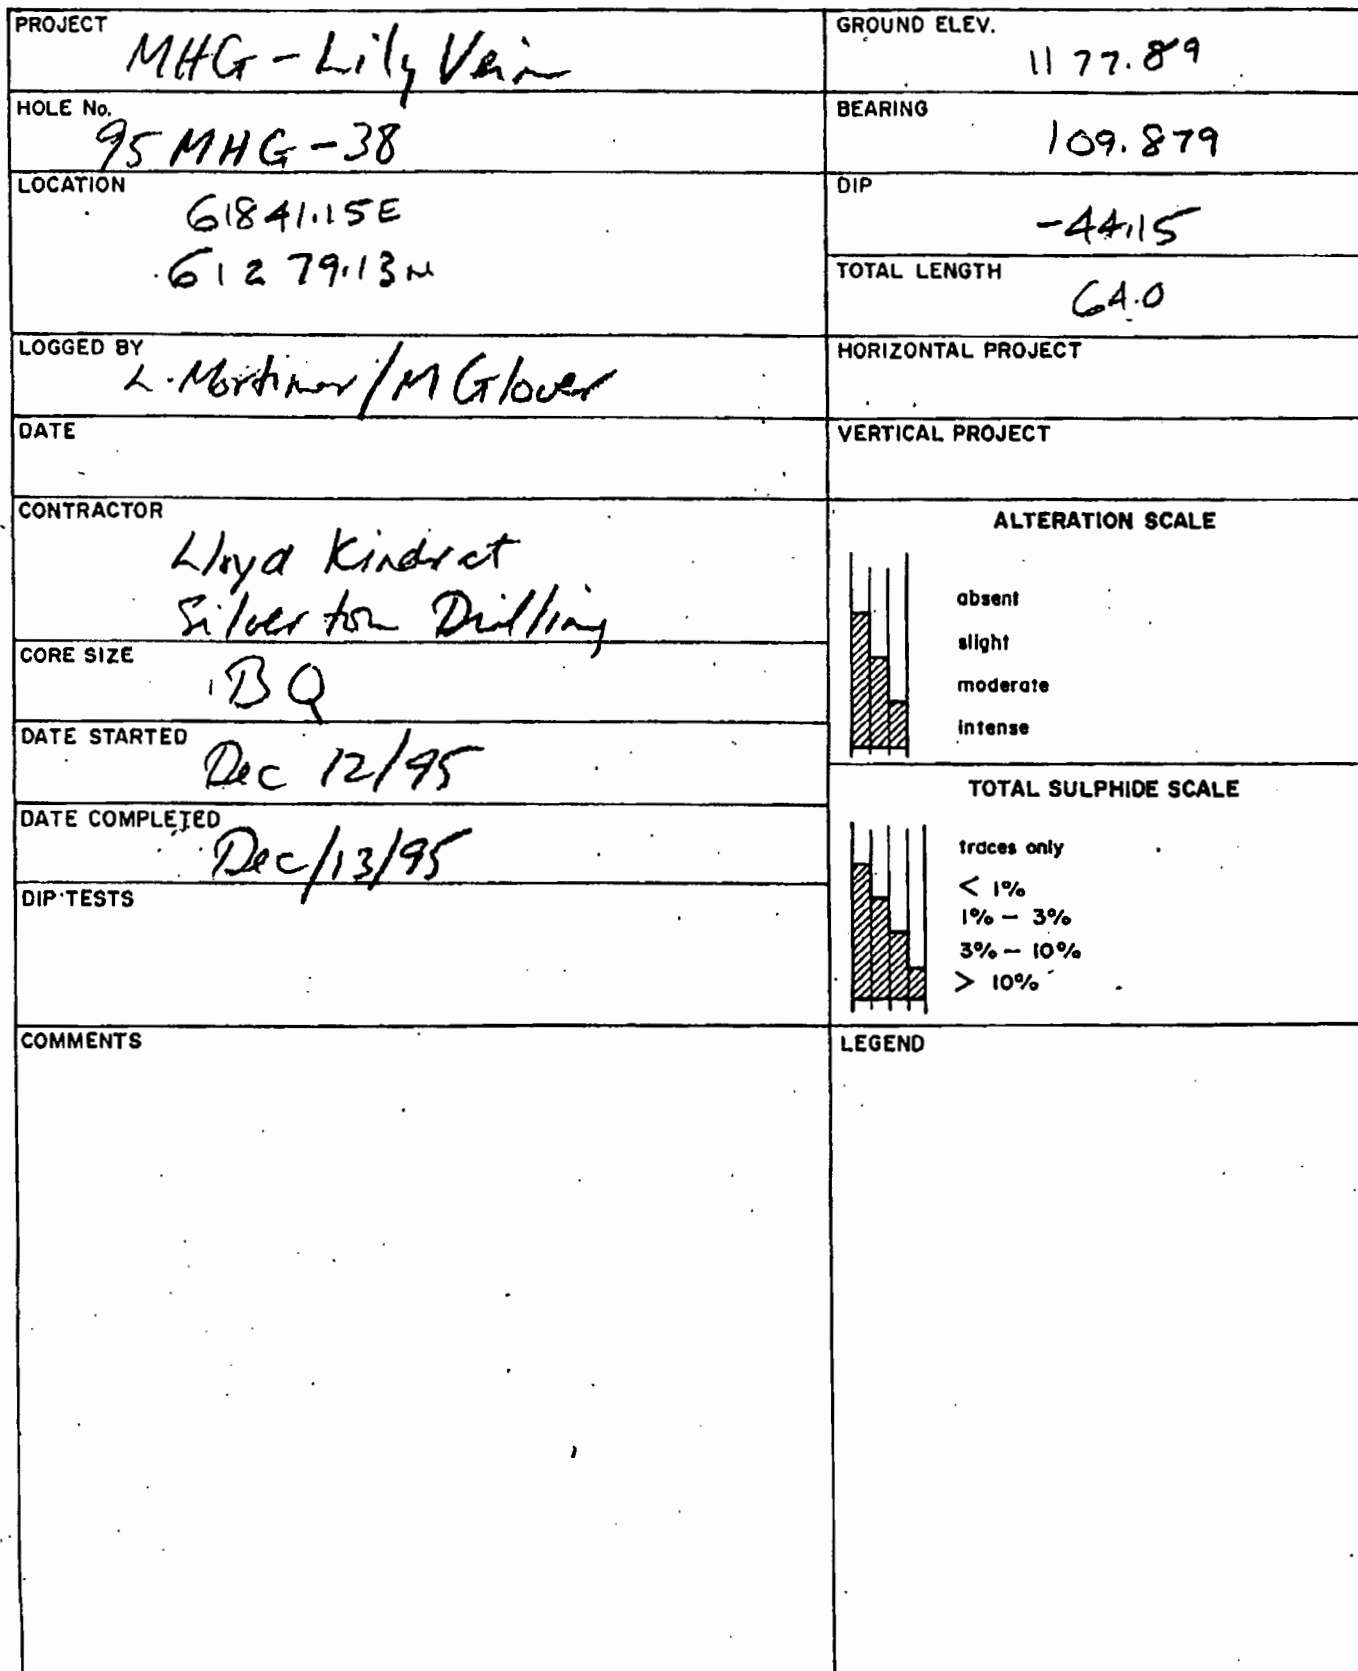 PROJECT
MHG - Lily Vein
HOLE No.
95 MHG - 38
LOCATION
61841.15E
61279.13N
LOGGED BY
L. Mortimer / M Glover
DATE
CONTRACTOR
Lloyd Kindrat
Silverton Drilling
CORE SIZE
BQ
DATE STARTED
Dec 12/95
DATE COMPLETED
Dec/13/95
DIP TESTS
COMMENTS
GROUND ELEV.
1177.89
BEARING
109.879
DIP
-44.15
TOTAL LENGTH
64.0
HORIZONTAL PROJECT
VERTICAL PROJECT
ALTERATION SCALE
absent
slight
moderate
intense
TOTAL SULPHIDE SCALE
traces only
< 1%
1% - 3%
3% - 10%
> 10%
LEGEND